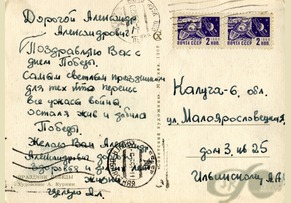 Дорогой Александр
Александрович!
Поздравляю Вас с
днем Победы.
Самым светлым праздником
для тех кто перенес
все ужасы войны,
остался жив и добился
Победы.
Желаю Вам Александр
Александрович
здоровья и
жизни
ПОЧТА СССР 2 КОП
ПОЧТА СССР 2 КОП
Калуга-6, обл.
ул. Малоярославецкая,
дом 3, кв 25
Ильинскому А.А.